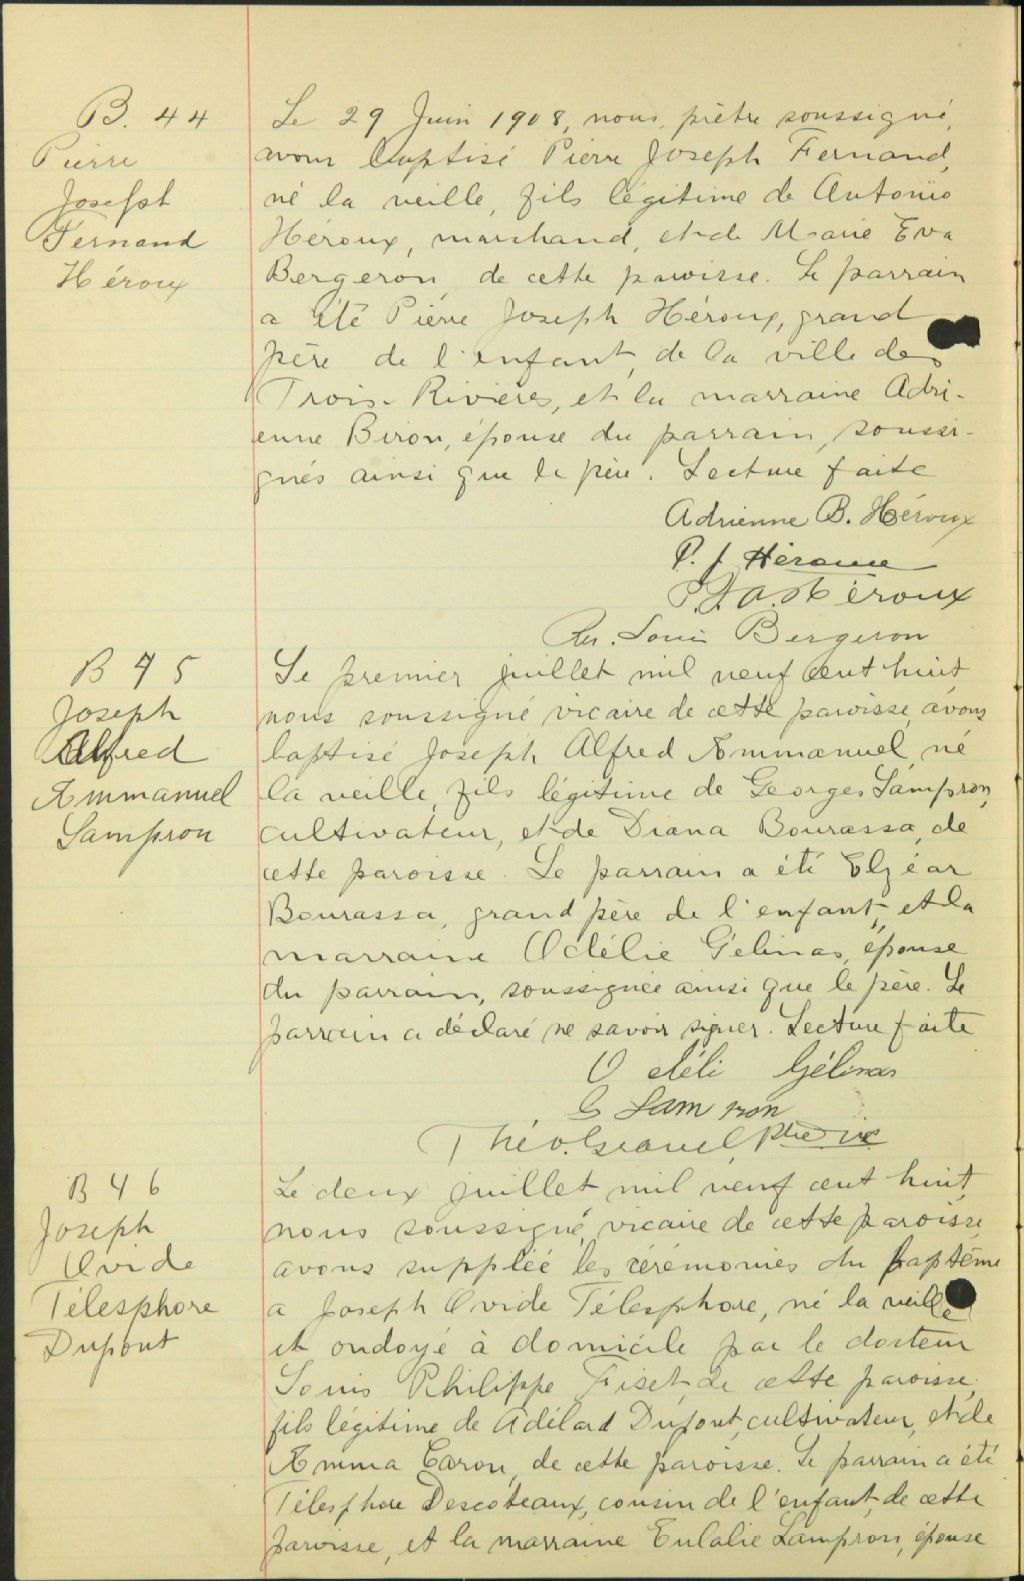 B. 44
Pierre
Joseph
Fernand
Héroux
Le 29 Juin 1908, nous, prêtre soussigné,
avons baptisé Pierre Joseph Fernand,
né la veille, fils légitime de Antonio
Héroux, marchand, et de Marie Eva
Bergeron, de cette paroisse. Le parrain
a été Pierre Joseph Héroux, grand
père de l'enfant, de la ville des
Trois-Rivières, et la marraine Adri-
enne Biron, épouse du parrain, soussi-
gnés ainsi que le père. Lecture faite
Adrienne B. Héroux
P. J. Héroux
P. J. A. Héroux
Ptr. Louis Bergeron
B 45
Joseph
Alfred
Emmanuel
Lampron
Le premier juillet mil neuf cent huit,
nous soussigné vicaire de cette paroisse, avons
baptisé Joseph Alfred Emmanuel, né
la veille, fils légitime de Georges Lampron,
cultivateur, et de Diana Bourassa, de
cette paroisse. Le parrain a été Elzéar
Bourassa, grand père de l'enfant, et la
marraine Odélie Gélinas, épouse
du parrain, soussignée ainsi que le père. Le
parrain a déclaré ne savoir signer. Lecture faite
Odéli Gélinas
G Lampron
Théo. Gravel, Ptre vic
B 46
Joseph
Ovide
Télesphore
Dupont
Le deux juillet mil neuf cent huit,
nous soussigné, vicaire de cette paroisse,
avons suppléé les cérémonies du baptême
a Joseph Ovide Télesphore, né la veille
et ondoyé à domicile par le docteur
Louis Philippe Fiset de cette paroisse,
fils légitime de Adélard Dupont, cultivateur, et de
Emma Caron, de cette paroisse. Le parrain a été
Télesphore Descoteaux, cousin de l'enfant, de cette
paroisse, et la marraine Eulalie Lampron, épouse